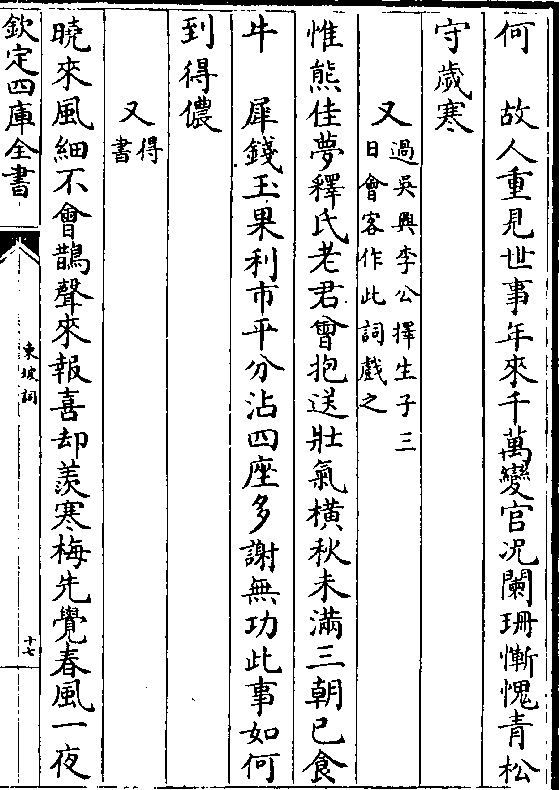 何　故人重見世事年來千萬變官况闌珊慚愧青松
守歲寒
又過吳興李公擇生子三
日會客作此詞戲之
惟熊佳夢釋氏老君曾抱送壯氣橫秋未滿三朝已食
牛　犀錢玉果利市平分沾四座多謝無功此事如何
到得儂
又得
書
曉來風細不會鵲聲來報喜却羨寒梅先覺春風一夜
欽定四庫全書
東坡詞
十七